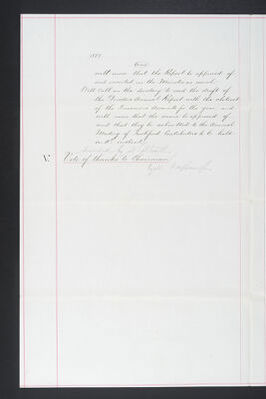 1887
will move that the Report be approved of
and inserted in the Minutes as usual.
Will call on the Secretary to read the draft of
the Directors Annual Report with the abstract
of the Treasurers Accounts for the year and
will move that the same be approved of
and that they be submitted to the Annual
Meeting of Qualified Contributors to be held
instant.
V. Vote of thanks to Chairman